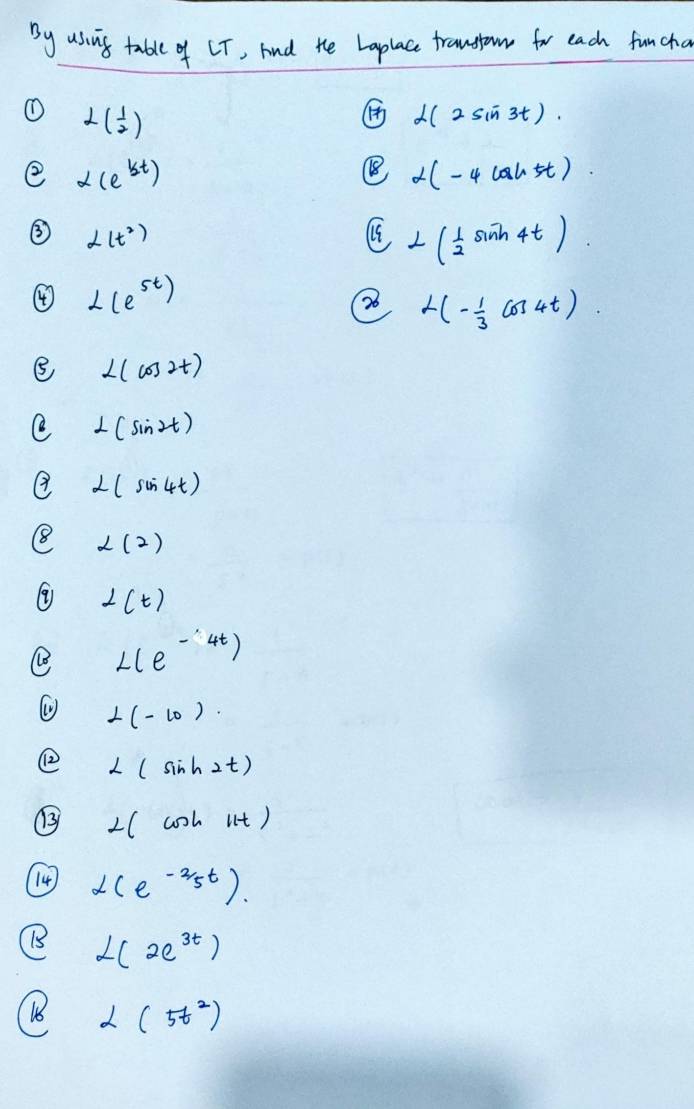 By using table of LT, find the Laplace transform for each function
① L(1/2)
② L(e^{1/5t})
③ L(t²)
④ L(e^{5t})
⑤ L(cos 2t)
⑥ L(sin 2t)
⑦ L(sin 4t)
⑧ L(2)
⑨ L(t)
⑩ L(e^{-4t})
⑪ L(-10).
⑫ L(sinh 2t)
⑬ L(cosh 11t)
⑭ L(e^{-2/5t}).
⑮ L(2e^{3t})
⑯ L(5t²)
⑰ L(2 sin 3t).
⑱ L(-4 cosh 5t).
⑲ L(1/2 sinh 4t).
⑳ L(-1/3 cos 4t).